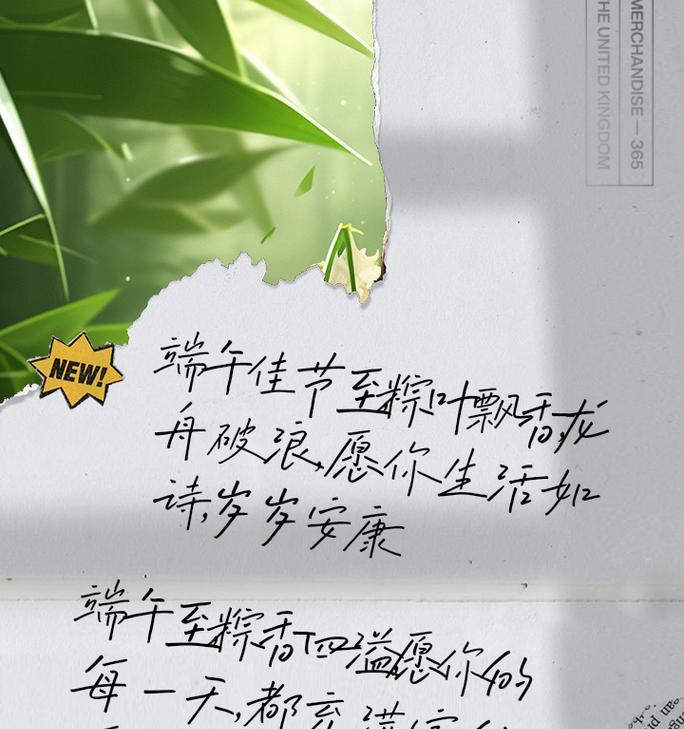 MERCHANDISE — 365
THE UNITED KINGDOM
NEW!
端午佳节至粽叶飘香,龙
舟破浪,愿你生活如
诗,岁岁安康
端午至粽香四溢愿你的
每一天,都充满
an pu